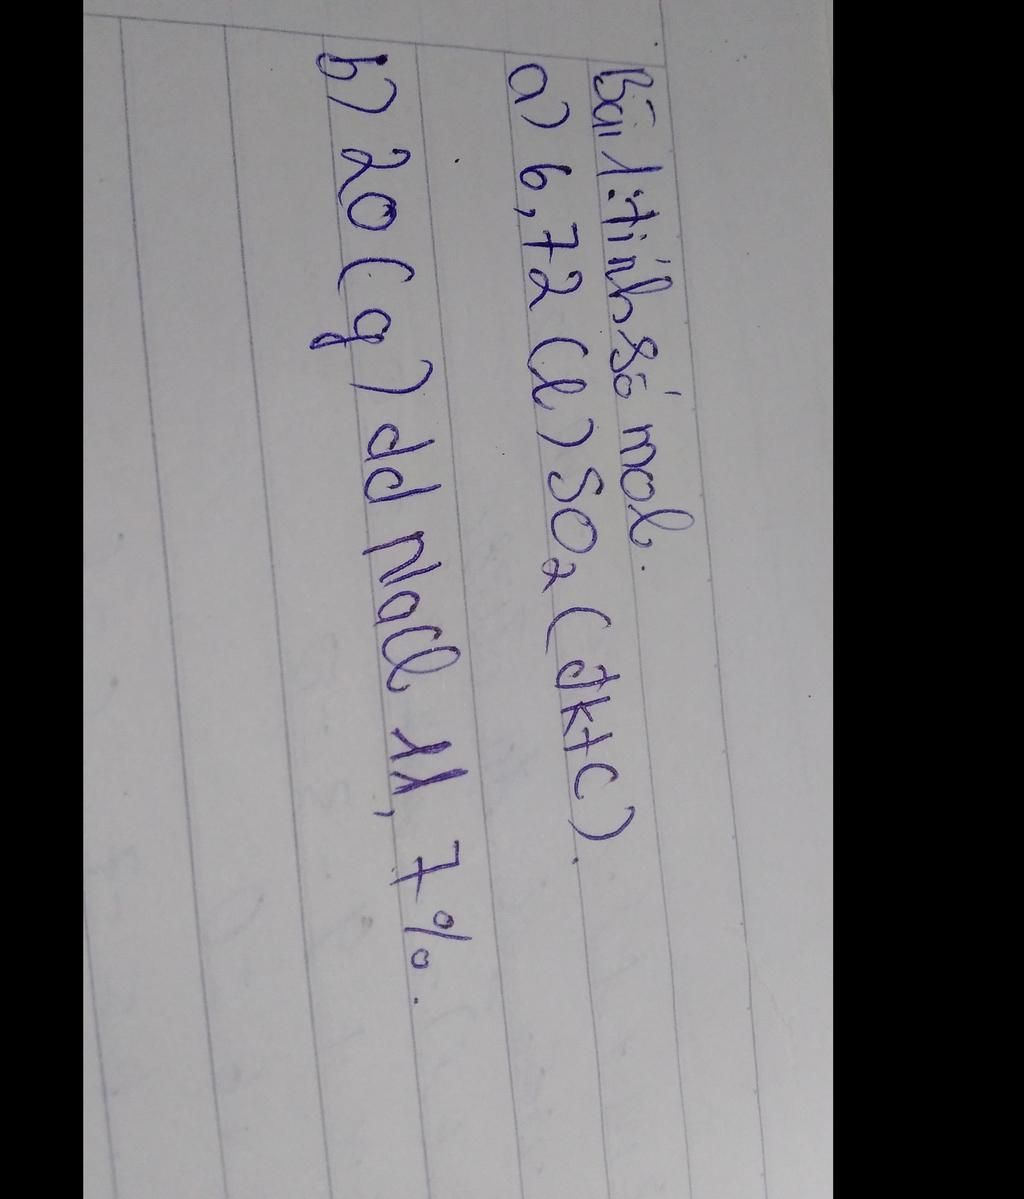 Bài 1: tính số mol.
a) 6,72 (l) SO₂ (đktc).
b) 20 (g) dd NaCl 11,7%.